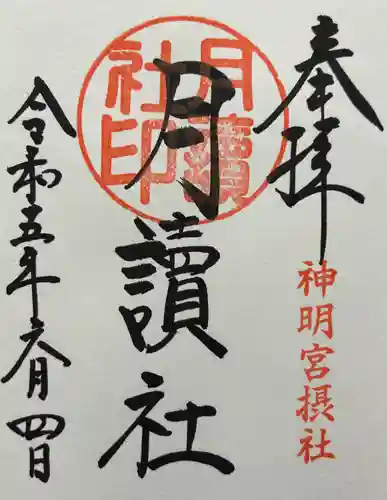 奉拝
神明宮摂社
月讀社
月讀社印
令和五年六月四日